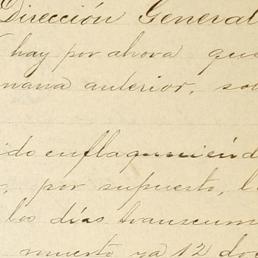 Dirección General
hay por ahora que
mana anterior, so
ido enflaqueciend
por supuesto, l
los días transcurri
muerto ya 12 do